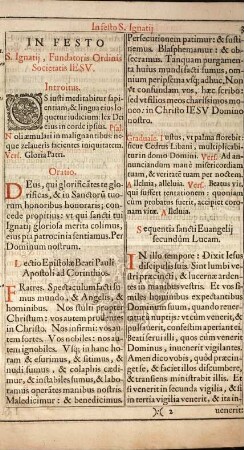 In festo S. Ignatij.
IN FESTO
S. Ignatij, Fundatoris Ordinis
Societatis IESV.
Introitus.
OS iusti meditabitur sapi-
entiam, & lingua eius lo-
quetur iudicium: lex Dei
eius in corde ipsius. Psal.
Noli æmulari in malignantibus: ne-
que zelaueris facientes iniquitatem.
Vers. Gloria Patri.
Oratio.
DEus, qui glorificātes te glo-
rificas, & in Sanctorū tuo-
rum honoribus honoraris; con-
cede propitius: vt qui sancti tui
Ignatij gloriosa merita colimus,
eius pia patrocinia sentiamus. Per
Dominum nostrum.
Lectio Epistolæ Beati Pauli
Apostoli ad Corinthios.
FRatres. Spectaculum facti su-
mus mundo, & Angelis, &
hominibus. Nos stulti propter
Christum: vos autem prudentes
in Christo. Nos infirmi: vos au-
tem fortes. Vos nobiles: nos au-
tem ignobiles. Vsq; in hanc ho-
ram & esurimus, & sitimus, &
nudi sumus, & colaphis cædi-
mur, & instabiles sumus, & labo-
ramus operātes manibus nostris.
Maledicimur: & benedicimus.
Persecutionem patimur: & susti-
nemus. Blasphemamur: & ob-
secramus. Tanquam purgamen-
ta huius mundi facti sumus, om-
nium peripsema vsq; adhuc. Non
vt confundam vos, hæc scribo:
sed vt filios meos charissimos mo-
neo: in Christo IESV Domino
nostro.
Graduale. Iustus, vt palma florebit:
sicut Cedrus Libani, multiplicab-
itur in domo Domini. Vers. Ad
annunciandum manè misericordiam
tuam, & veritatē tuam per noctem.
Alleluia, alleluia. Vers. Beatus vir,
qui suffert tentationem: quoniam
cùm probatus fuerit, accipiet coro-
nam vitæ. Alleluia.
Sequentia sancti Euangelij
secundùm Lucam.
IN illo tempore: Dixit Iesus
discipulis suis. Sint lumbi ve-
stri præcincti, & lucernæ arden-
tes in manibus vestris. Et vos si-
miles hominibus expectantibus
Dominum suum, quando reuer-
tatur à nuptijs: vt cùm venerit, &
pulsauerit, confestim aperiant ei.
Beati serui illi, quos cùm venerit
Dominus, inuenerit vigilantes.
Amen dico vobis, quòd præcin-
get se, & faciet illos discumbere, &
transiens ministrabit illis. Et
si venerit in secunda vigilia, & si
in tertia vigilia venerit, & ita in-
):( 2
uenerit